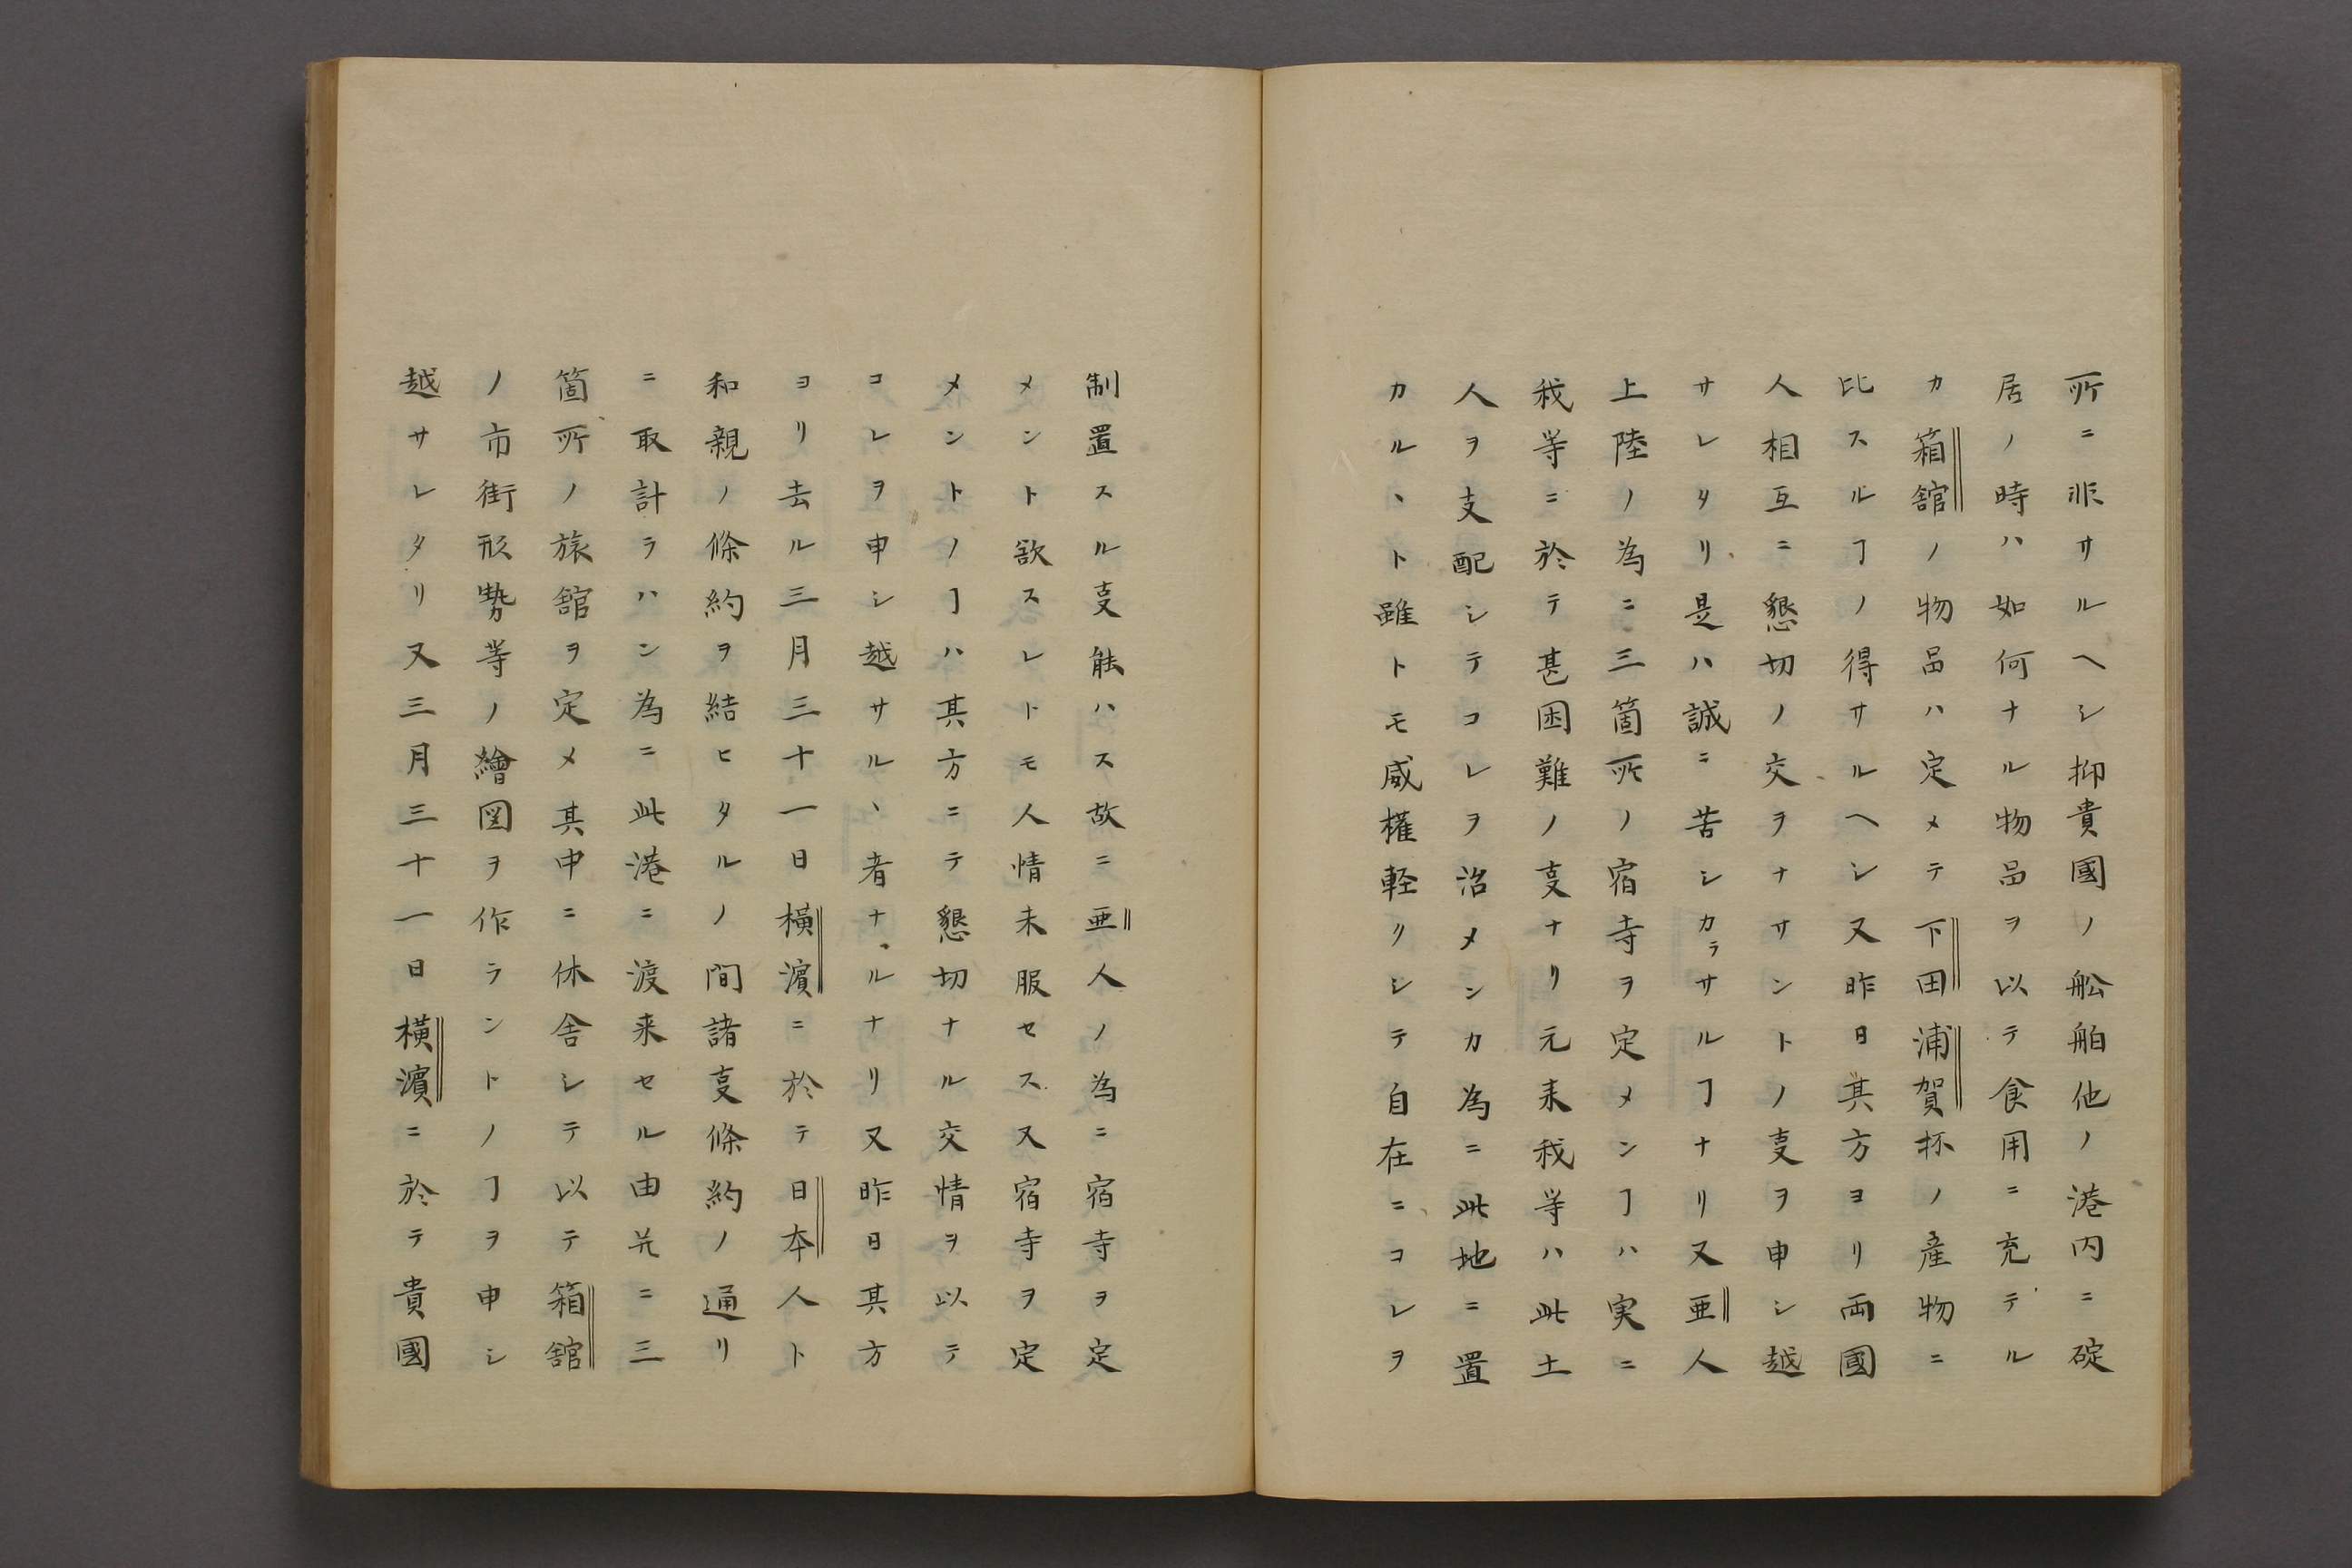 所ニ非サルヘシ抑貴國ノ舩舶他ノ港内ニ碇
居ノ時ハ如何ナル物品ヲ以テ食用ニ充テル
カ箱舘ノ物品ハ定メテ下田浦賀抔ノ産物ニ
比スルヿノ得サルヘシ又昨日其方ヨリ両國
人相互ニ懇切ノ交ヲナサントノ叓ヲ申シ越
サレタリ是ハ誠ニ苦シカラサルヿナリ又亜人
上陸ノ為ニ三箇所ノ宿寺ヲ定メンヿハ実ニ
我等ニ於テ甚困難ノ叓ナリ元来我等ハ此土
人ヲ支配シテコレヲ治メンカ為ニ此地ニ置
カルヽト雖トモ威權軽クシテ自在ニコレヲ
制置スル叓能ハス故ニ亜人ノ為ニ宿寺ヲ定
メント欲スレトモ人情未服セス又宿寺ヲ定
メントノヿハ其方ニテ懇切ナル交情ヲ以テ
コレヲ申シ越サルヽ者ナルナリ又昨日其方
ヨリ去ル三月三十一日横濱ニ於テ日本人ト
和親ノ條約ヲ結ヒタルノ間諸叓條約ノ通リ
ニ取計ラハン為ニ此港ニ渡来セル由並ニ三
箇所ノ旅舘ヲ定メ其中ニ休舎シテ以テ箱舘
ノ市街形勢等ノ繪図ヲ作ラントノヿヲ申シ
越サレタリ又三月三十一日横濱ニ於テ貴國